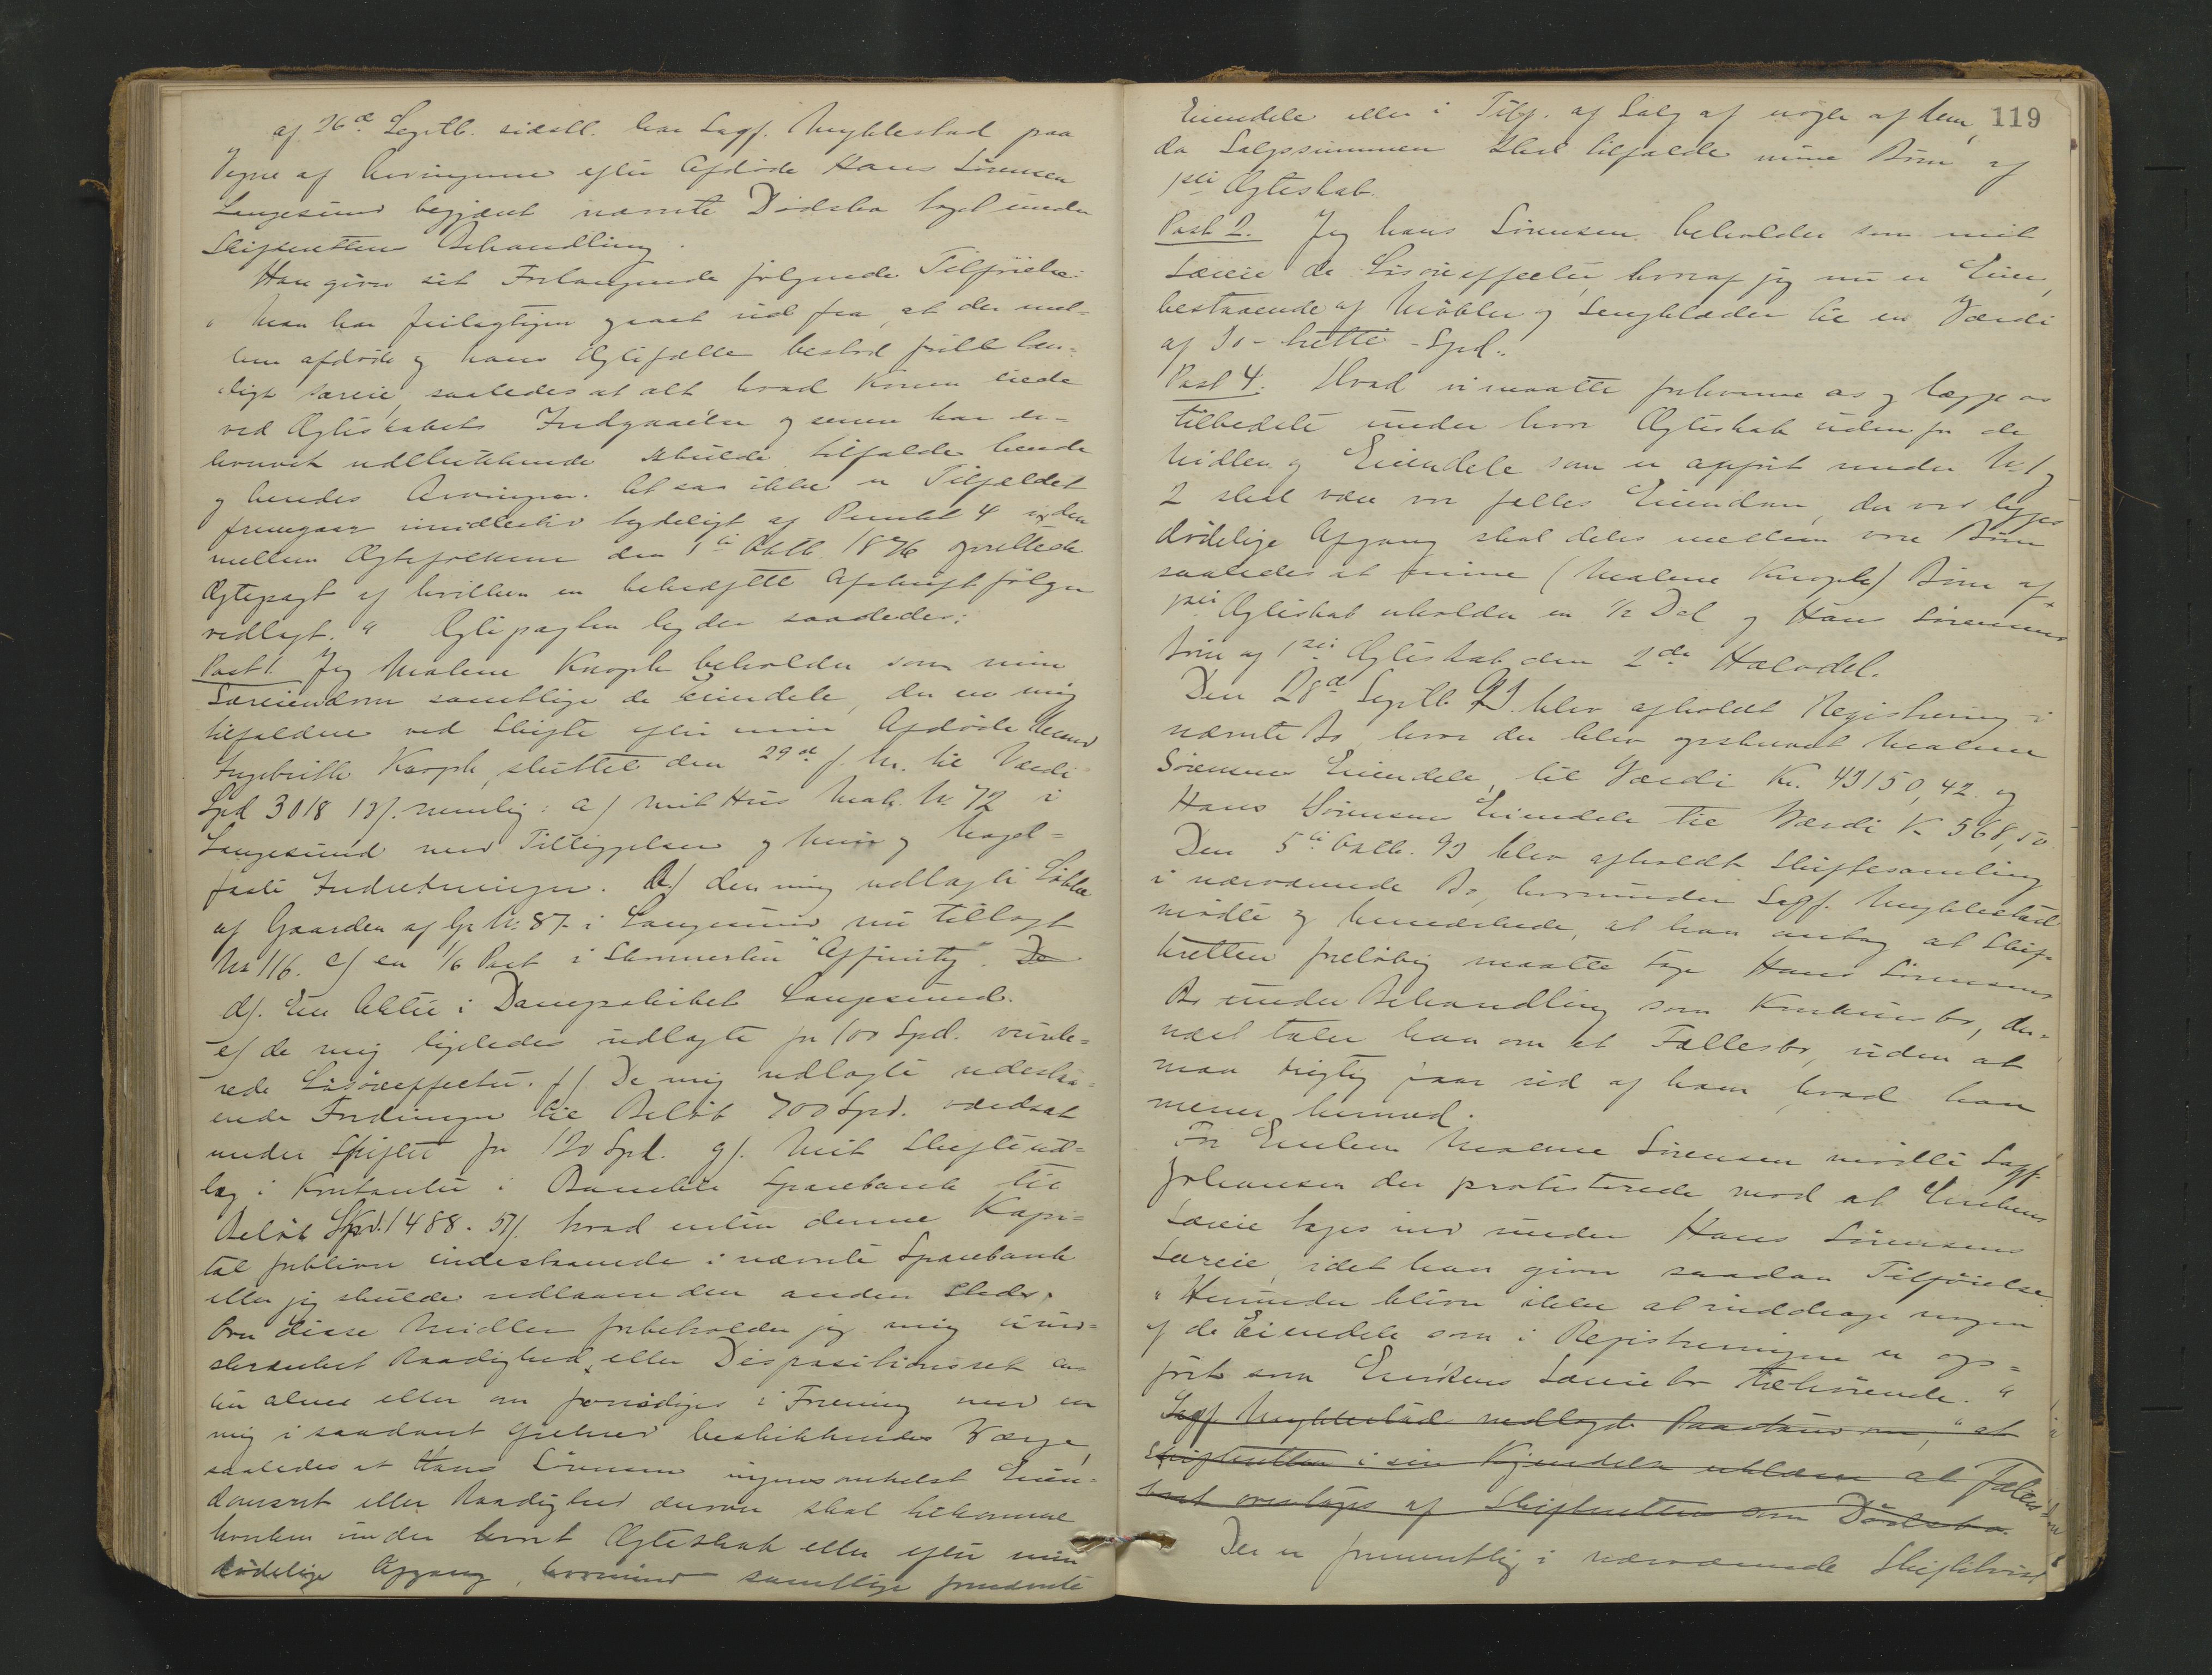 af 26de Septb. sidstl. har Sagf. Myklestad paa
Vegne af Arvingerne efter Afdøde Hans Sørensen
Langesund begjært nævnte Dødsbo taget under
Skifterettens Behandling.
Han giver sit Forlangende følgende Tilføielse:
"Man har feilagtigen gaaet ud fra, at der mel-
lem afdøde og hans Ægtefælle bestod fuldstæn-
digt særeie, saaledes at alt hvad Konen eiede
ved Ægteskabets Indgaaelse og senere har er-
hvervet udelukkende skulde tilfalde hende
og hendes Arvinger. At saa ikke er Tilfældet
fremgaar imidlertid tydeligt af Punkt 4 i den
mellem Ægtefolkene den 1ste Oktb. 1876 oprettede
Ægtepagt af hvilken en bekræftet Afskrift følger
vedlagt." Ægtepagten lyder saaledes:
Post 1. Jeg Malene Knoph beholder som min
Særeiendom samtlige de Eiendele, der er mig
tilfaldne ved Skifte efter min Afdøde Mand
Ingebrikt Knoph, sluttet den 29de f. M. til Værdi
Spd 3018 13/. nemlig: a/ mit Hus Matr. No. 72 i
Langesund med Tilliggelser og mur og nagel-
faste Indretninger. b/ den mig udlagte Løkke
af Gaarden af Gr No. 87 i Langesund nu tillagt
No 116. c/ en 1/6 Part i Skonnerten "Affinity". De
d/. En Aktie i Dampskibet Langesund.
e/ de mig ligeledes udlagte for 100 Spd. vurde-
rede Løsøreeffecter. f/ De mig udlagte udestaa-
ende Fordringer til Beløb 700 Spd. værdsat
under Skiftet for 120 Spd. g/. Mit Skifteud-
læg i Kontanter i Bamble Sparebank til
Beløb Spd. 1488. 57/. hvad enten denne Kapi-
tal forbliver indestaaende i nævnte Sparebank
eller jeg skulde udlaane den anden Steds.
Over disse Midler forbeholder jeg mig uind-
skrænket Raadighed, eller Dispositionsret en-
ten alene eller om fornødiges i Forening med en
mig i saadant Øiemed beskikkendes Værge,
saaledes at Hans Sørensen ingensomhelst Eien-
domsret eller Raadighed derover skal tilkomme
hverken under vort Ægteskab eller efter min
dødelige Afgang, hvorimod samtlige fornævnte
119
Eiendele eller i Tilf. af Salg af nogle af dem,
da Salgssummen skal tilfalde mine Børn af
1ste Ægteskab.
Post 2. Jeg Hans Sørensen beholder som mit
Særeie de Løsøreeffecter, hvoraf jeg nu er Eier,
bestaaende af Møbler og Sengklæder til en Værdi
af 30 - tretti - Spd.
Post 4. Hvad vi maatte forhverve os og lægge os
tilbedste under vort Ægteskab udenfor de
Midler og Eiendele som er anført under No 1 og
2 skal være vor fælles Eiendom, der ved begges
dødelige Afgang skal deles mellem vore Børn
saaledes at mine (Malene Knophs) Børn af
1ste Ægteskab erholder en 1/2 Del og Hans Sørensens
Børn af 1ste Ægteskab den 2den Halvdel.
Den 28de Septb 93 blev afholdt Registrering i
nævnte Bo, hvor der blev opskrevet Malene
Sørensens Eiendele, til Værdi Kr. 43150,42 og
Hans Sørensens Eiendele til Værdi Kr 568,50
Den 5te Oktb. 93 blev afholdt Skiftesamling
i nærværende Bo, hvorunder Sagf. Myklestad
mødte og bemærkede, at han antog at Skif-
teretten foreløbig maatte tage Hans Sørensens
Bo under Behandling som Konkursbo, der-
næst taler han om et Fællesbo, uden at
man rigtig faar ud af ham hvad han
mener hermed.
For Enken Malene Sørensen mødte Sagf.
Johansen der protesterede mod at Enkens
Særeie tages ind under Hans Sørensens
Særeie, idet han giver saadan Tilføielse
"Herunder bliver ikke at inddrage nogen
af de Eiendele som i Registreringen er op-
ført som Enkens Særeiebo tilhørende."
Sagf. Myklestad nedlagde Paastand om, "at
Skifteretten i sin Kjendelse erklærer at Fælles-
boet overtages af Skifteretten som Dødsbo.
Der er fremdeles i nærværende